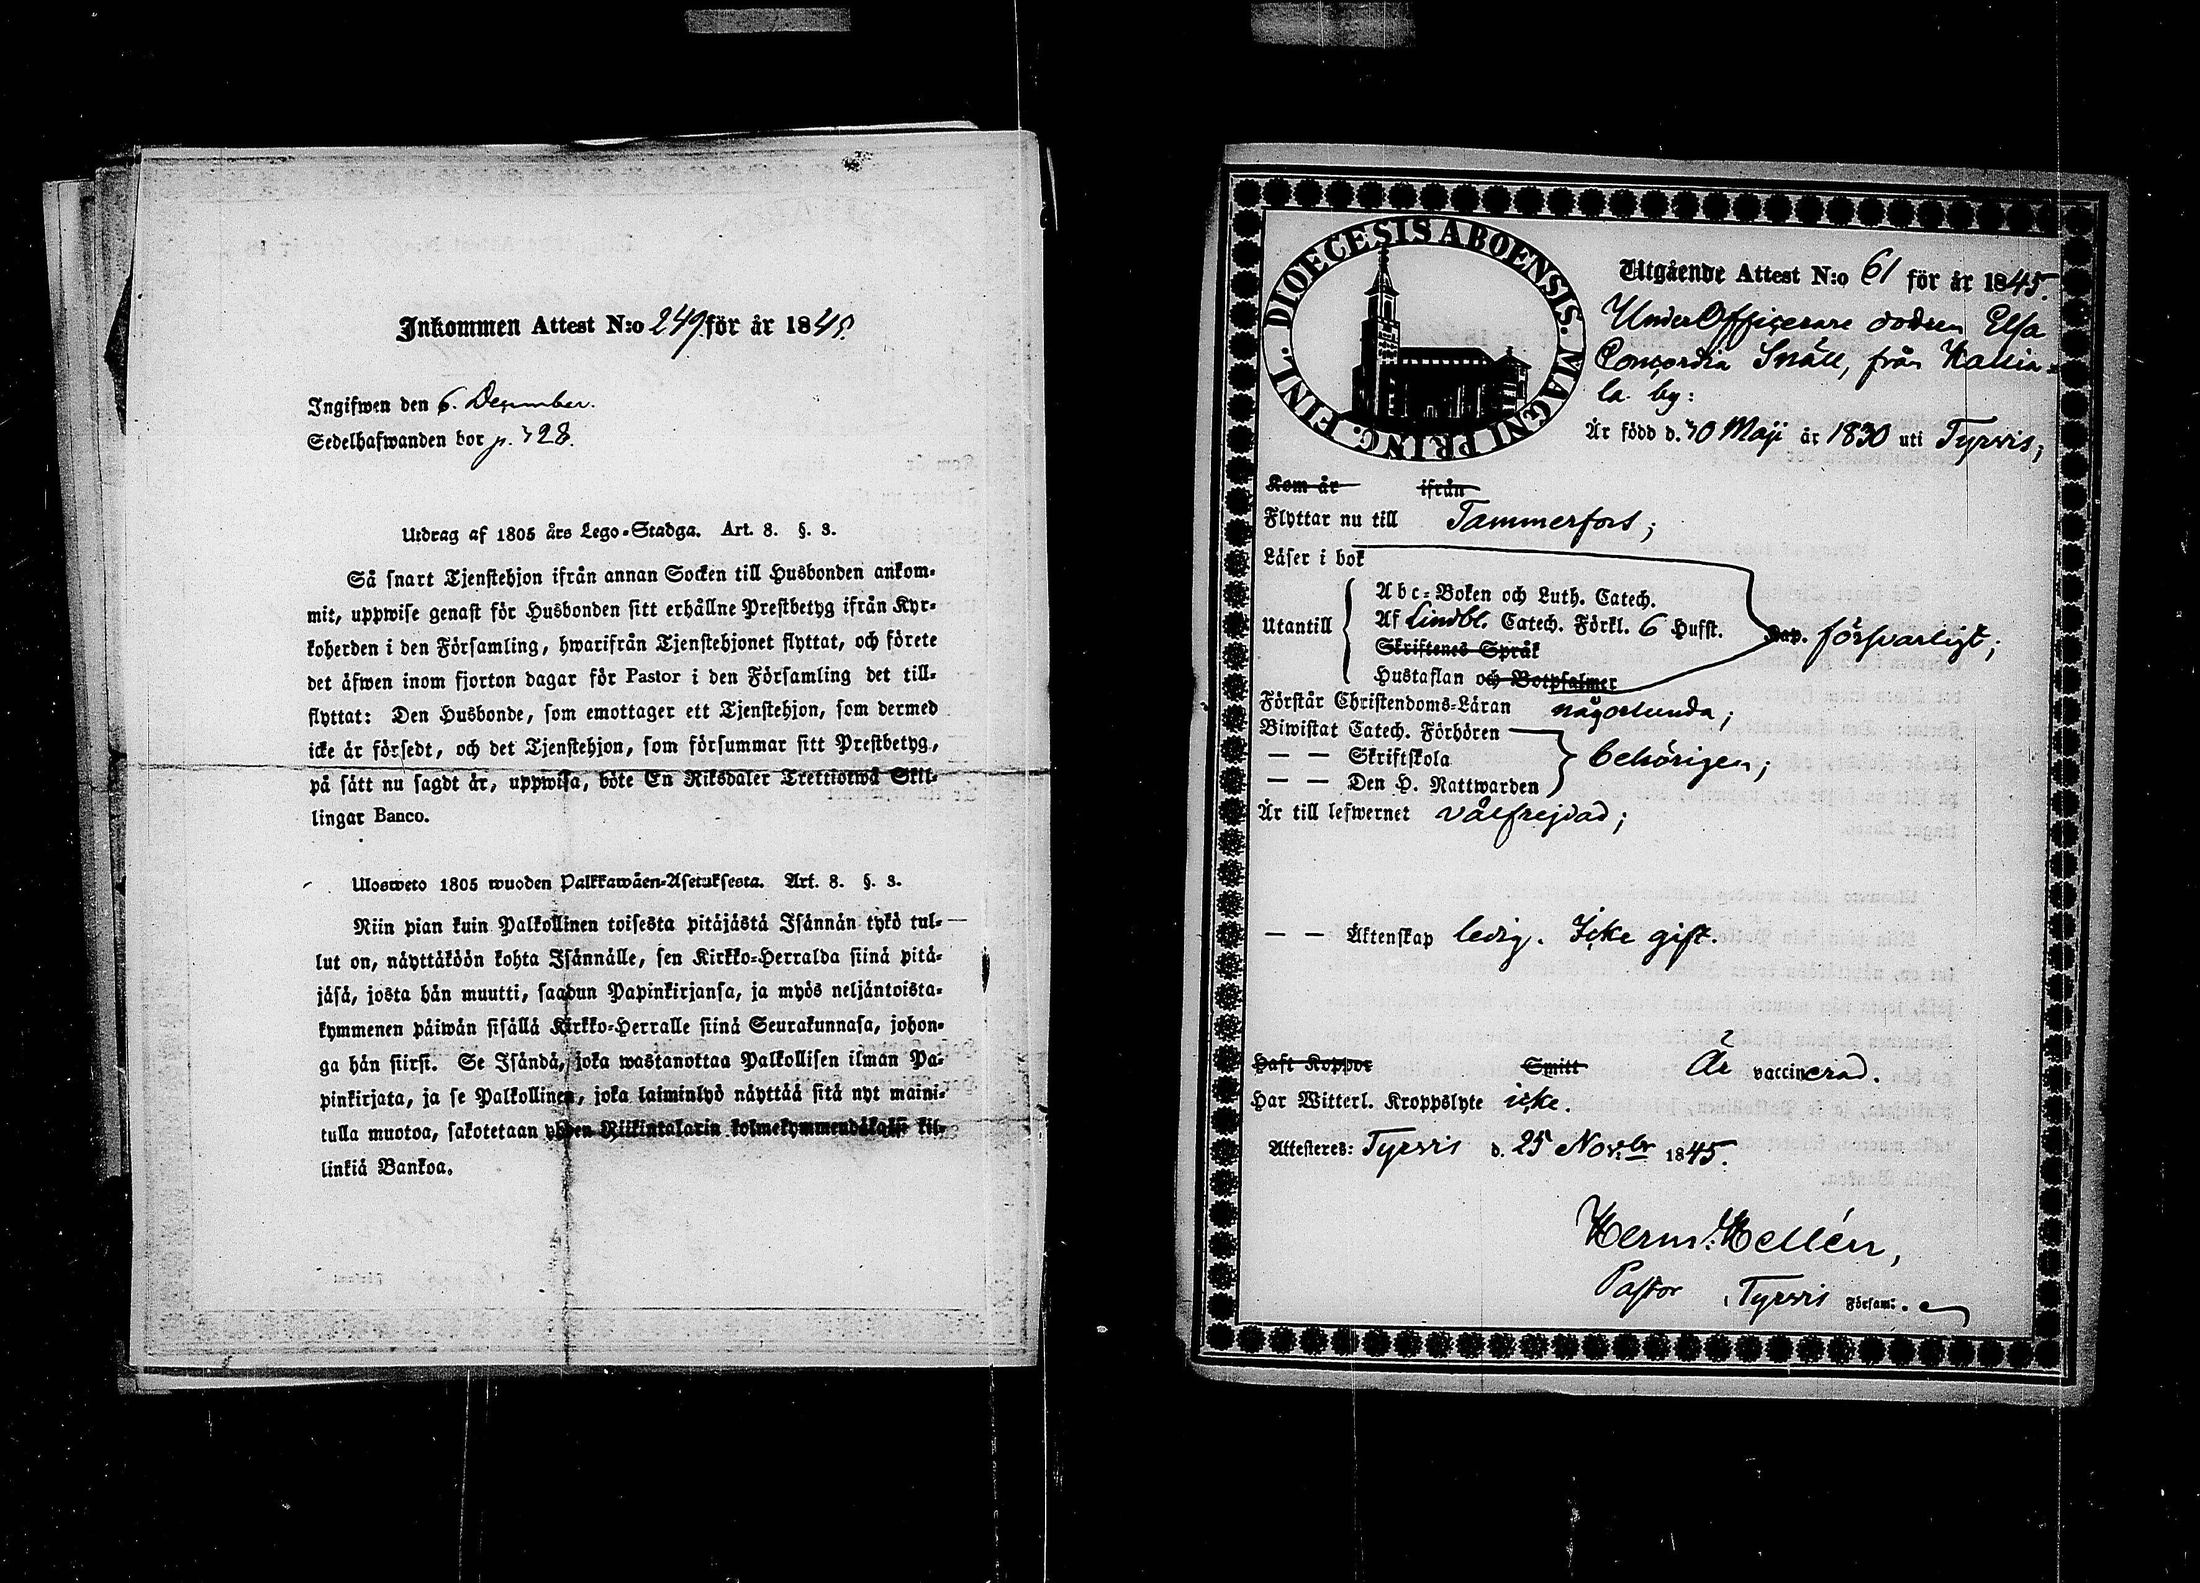 Inkommen Attest N:o 249 för år 1845.
Ingifwen den 6. December.
Sedelhafwanden bor p. 328.
Utdrag af 1805 års Lego-Stadga. Art. 8. §. 3.
Så snart Tjenstehjon ifrån annan Socken till Husbonden ankom-
mit, uppwise genast för Husbonden sitt erhållne Prestbetyg ifrån Kyr-
koherden i den Församling, hwarifrån Tjenstehjonet flyttat, och förete
det äfwen inom fjorton dagar för Pastor i den Församling det till-
flyttat: Den Husbonde, som emottager ett Tjenstehjon, som dermed
icke är försedt, och det Tjenstehjon, som försummar sitt Prestbetyg,
på sätt nu sagdt är, uppwisa, böte En Riksdaler Trettiotwå Skil-
lingar Banco.
Ulosweto 1805 wuoden Palkkawäen-Asetuksesta. Art. 8. §. 3.
Niin pian kuin Palkollinen toisesta pitäjästä Isännän tykö tul-
lut on, näyttäköön kohta Isännälle, sen Kirkko-Herralda siinä pitä-
jäsä, josta hän muutti, saadun Papinkirjansa, ja myös neljäntoista-
kymmenen päiwän sisällä Kirkko-Herralle siinä Seurakunnasa, johon-
ga hän siirsi. Se Isändä, joka wastanottaa Palkollisen ilman Pa-
pinkirjata, ja se Palkollinen, joka laiminlyö näyttää sitä nyt maini-
tulla muotoa, sakotetaan yhden Riikintalarin kolmekymmendäkaksi kil-
linkiä Bankoa.
DIOECESIS ABOENSIS. MAGNI PRING. FINL.
Utgående Attest N:o 61 för år 1845.
UnderOfficerare dodren Elsa
Concordia Snäll, från Kallia-
la by:
Är född d. 30 Maji år 1830 uti Tyrvis;
Kom år ifrån
Flyttar nu till Tammerfors;
Läser i bok
Utantill Abc-Boken och Luth. Catech.
Af Lindbl. Catech. Förkl. 6 Hufst. Cap. försvarligt;
Skriftenes Språk
Hustaflan och Botpsalmer
Förstår Christendoms-Läran någorlunda;
Biwistat Catech. Förhören
— — Skriftskola behörigen;
— — Den H. Nattwarden
Är till lefwernet välfrejdad;
— — Äktenskap ledig. Icke gift.
Haft Koppor Smitt Är vaccinerad.
Har Witterl. Kroppslyte icke.
Attesteres: Tyrvis d. 25 Novbr 1845.
Herm: Hellén,
Pastor i Tyrvis Församl.